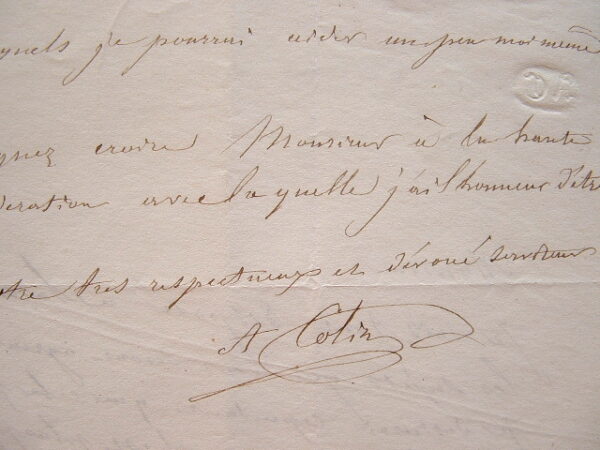 quels je pourrai aider un peu moi même
gnez croire Monsieur à la haute
deration avec laquelle j'ai l'honneur d'etr
otre tres respectueux et dévoué serviteur
A Colin